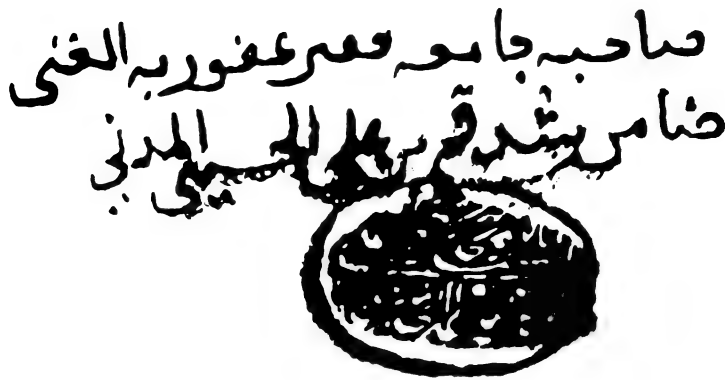 صاحبه جامعه فقير عفو ربه الغني
ضامن بن شدقم بن علي الحسيني المدني